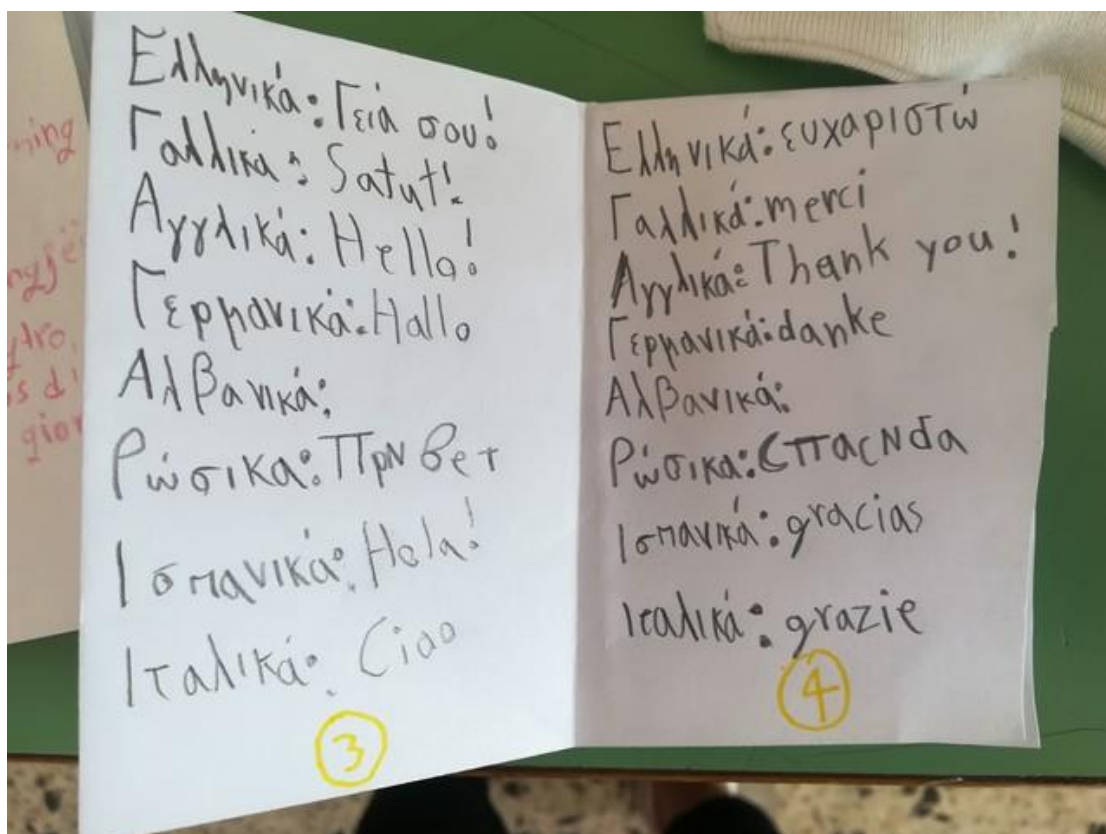 ning
Ελληνικά: Γειά σου!
Γαλλικά: Satut!
Αγγλικά: Hello!
Γερμανικά: Hallo
Αλβανικά:
Ρώσικα: ПрN вет
Ισπανικά: Hola!
Ιταλικά: Ciao
3
Ελληνικά: ευχαριστώ
Γαλλικά: merci
Αγγλικά: Thank you!
Γερμανικά: danke
Αλβανικά:
Ρώσικα: СпасNda
Ισπανικά: gracias
Ιταλικά: grazie
4